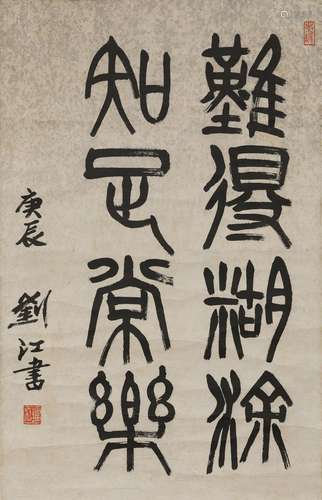 難得糊涂
知足常樂
庚辰
劉江書